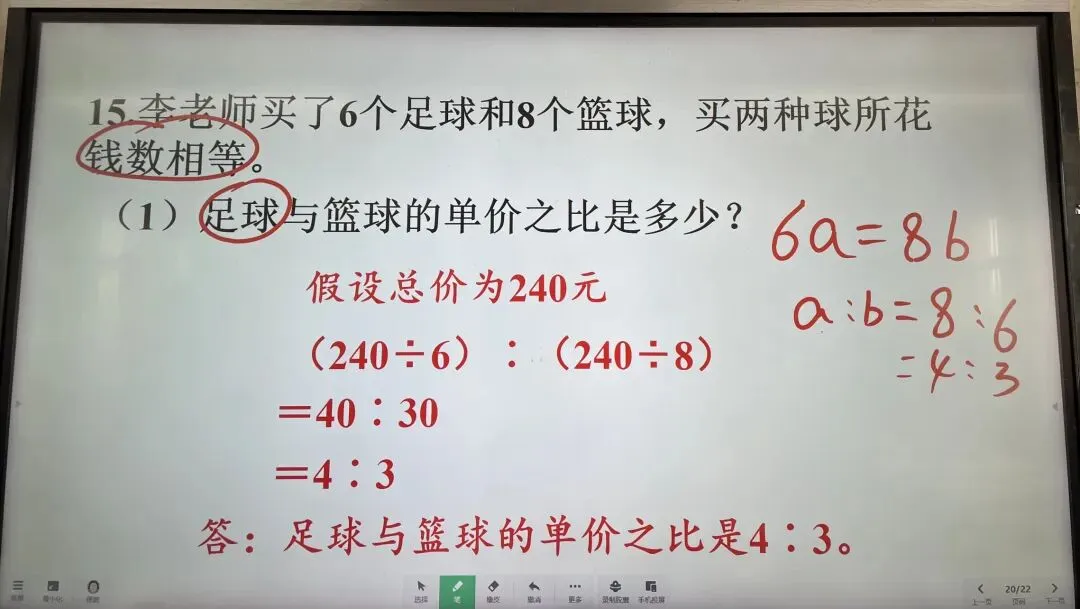 15.李老师买了6个足球和8个篮球，买两种球所花
钱数相等。
（1）足球与篮球的单价之比是多少？
6a=8b
假设总价为240元
a:b=8:6
（240÷6）：（240÷8）
=4:3
＝40∶30
＝4∶3
答：足球与篮球的单价之比是4∶3。
选择 笔 橡皮 撤消 更多 录制配置 手机投屏
20/22
上一页 页码 下一页